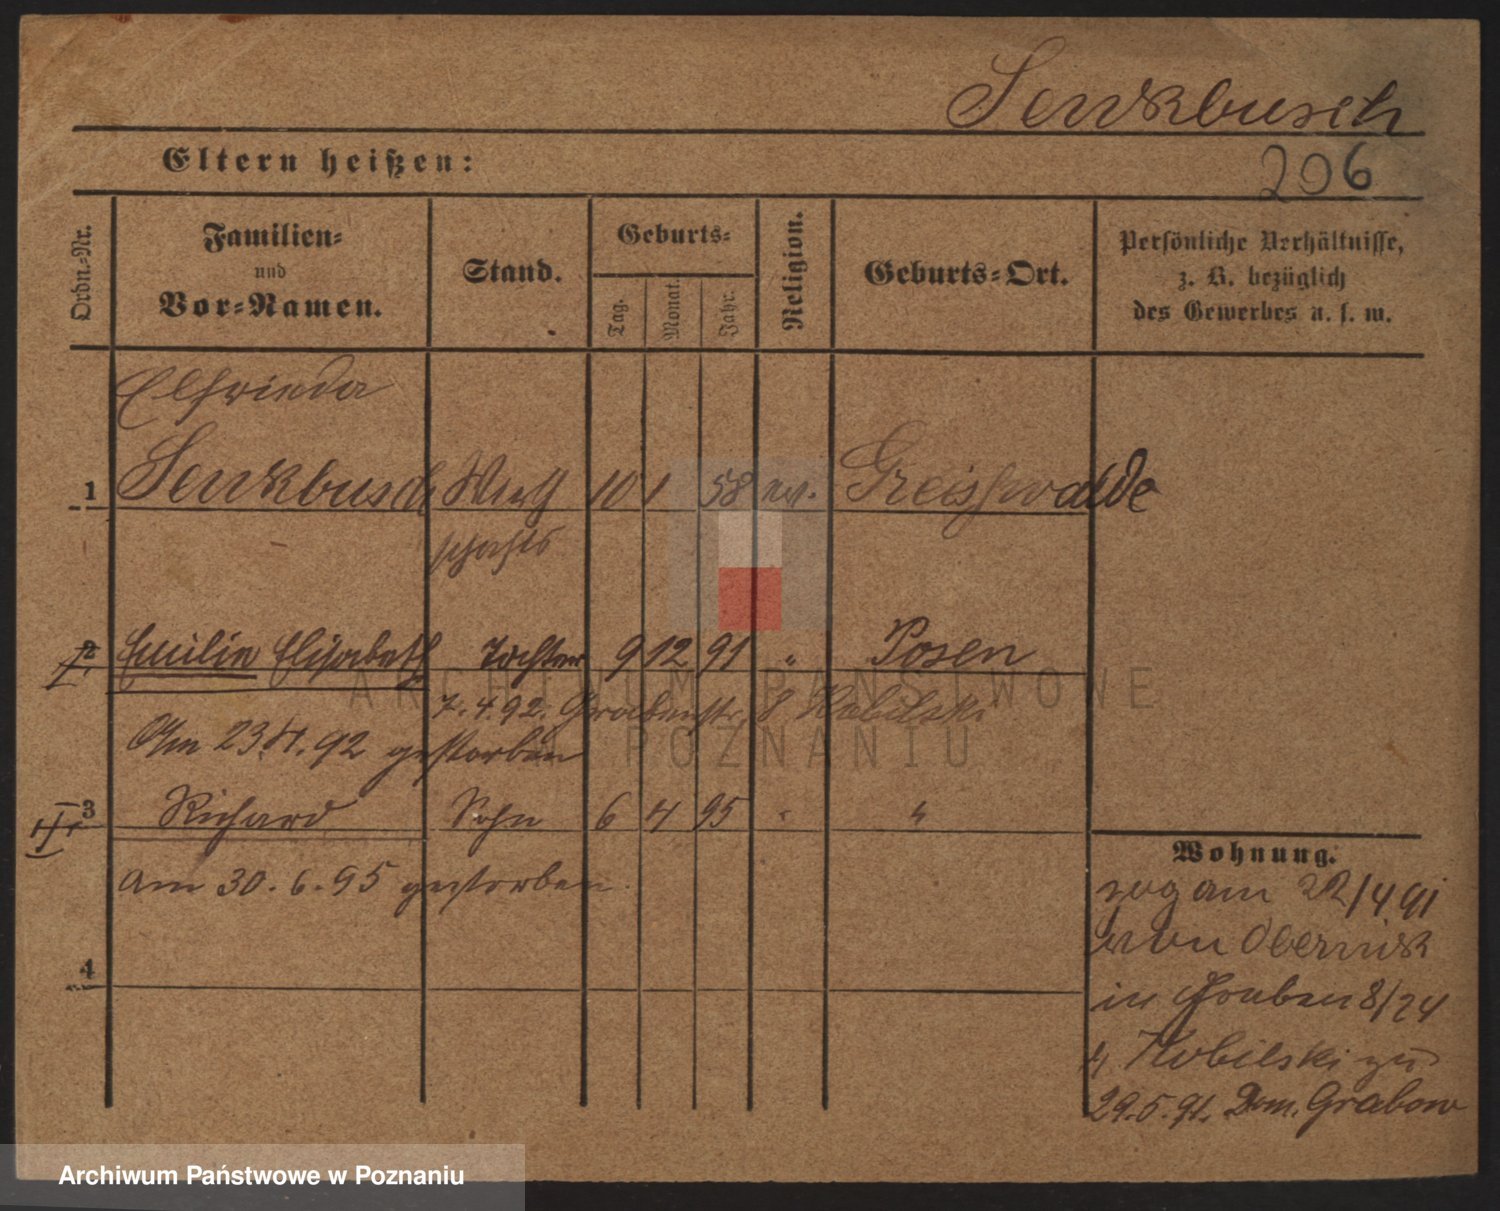 Senkbusch
Eltern heißen:
206
Ordn.-Nr.
Familien-
und
Vor-Namen.
Stand.
Geburts-
Tag.
Monat.
Jahr.
Religion.
Geburts-Ort.
Persönliche Verhältnisse,
z. B. bezüglich
des Gewerbes u. s. w.
Elfrieda
1 Senkbusch Wirth 10 1 58 ev. Greifswalde
schafts
2 Emilie Elisabeth Tochter 9 12 91 " Posen
7.4.92. Grabenstr. 8 Kobilski
Am 23. 92 gestorben
3 Richard Sohn 6 4 95 " "
am 30.6.95 gestorben.
4
Wohnung.
zog am 22/4 91
von Obernik
in Graben 8/24
Kobilski zu
29.5.91. Dom. Grabow
ARCHIWUM PAŃSTWOWE
W POZNANIU
Archiwum Państwowe w Poznaniu